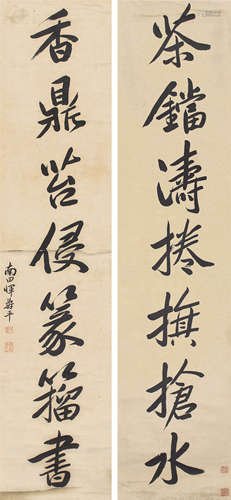 茶鐺濤捲旗槍水
香鼎苔侵篆籀書
南田惲壽平